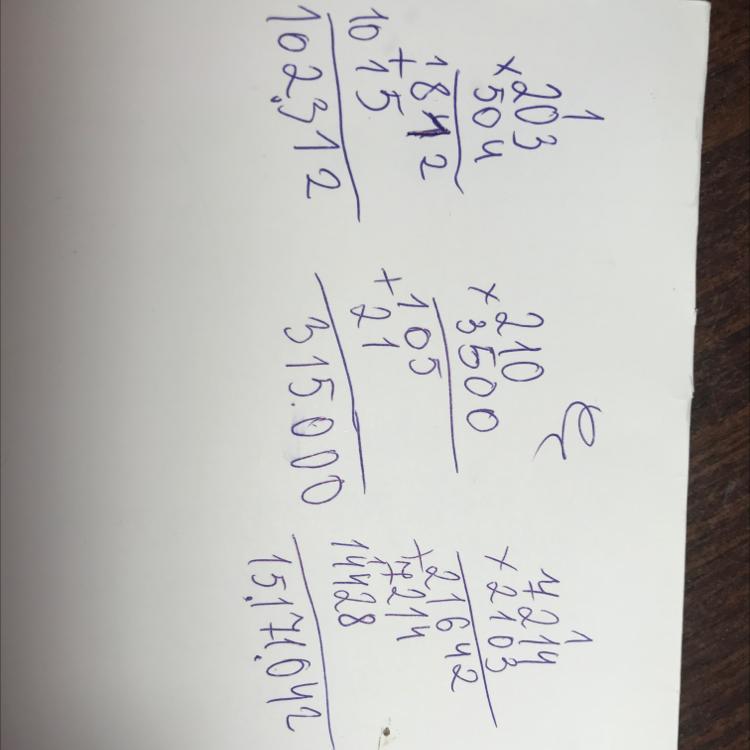 1
203
×504
1812
+
1015
102,312
210
×3500
105
+21
315.000
1
7214
×2103
21642
+7214
1
14428
15,171,042